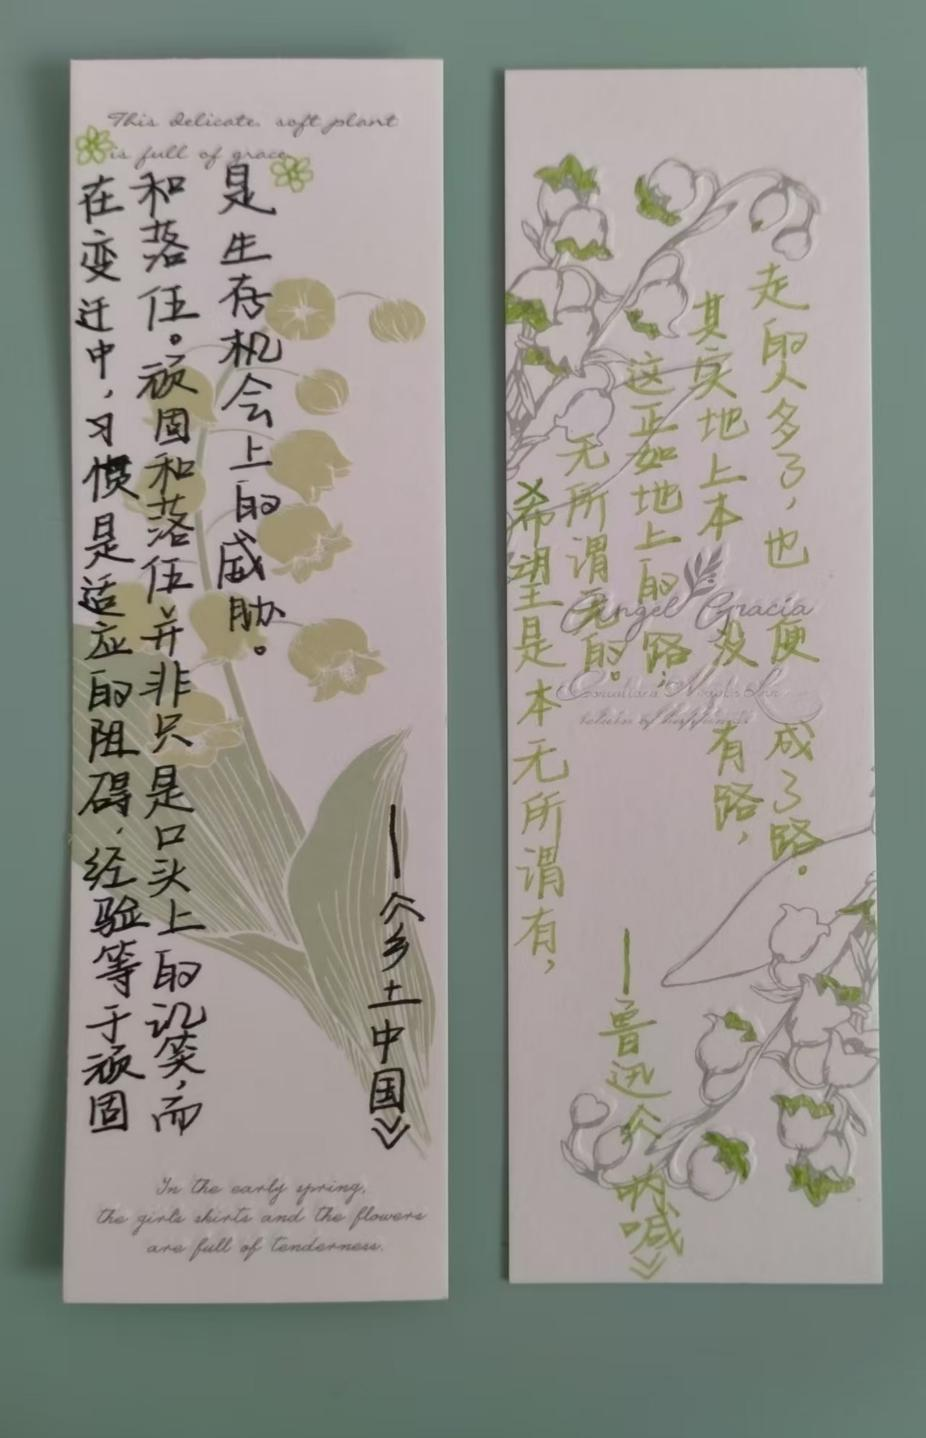 This delicate. soft plant
is full of grace.
在变迁中，习惯是适应的阻碍，经验等于顽固
和落伍。顽固和落伍并非只是口头上的讥笑，而
是生存机会上的威胁。
——《乡土中国》
In the early spring,
the girls skirts and the flowers
are full of tenderness.
希望是本无所谓有，
无所谓无的。
这正如地上的路；
其实地上本没有路，
走的人多了，也便成了路。
——鲁迅《呐喊》
Angel Gracia